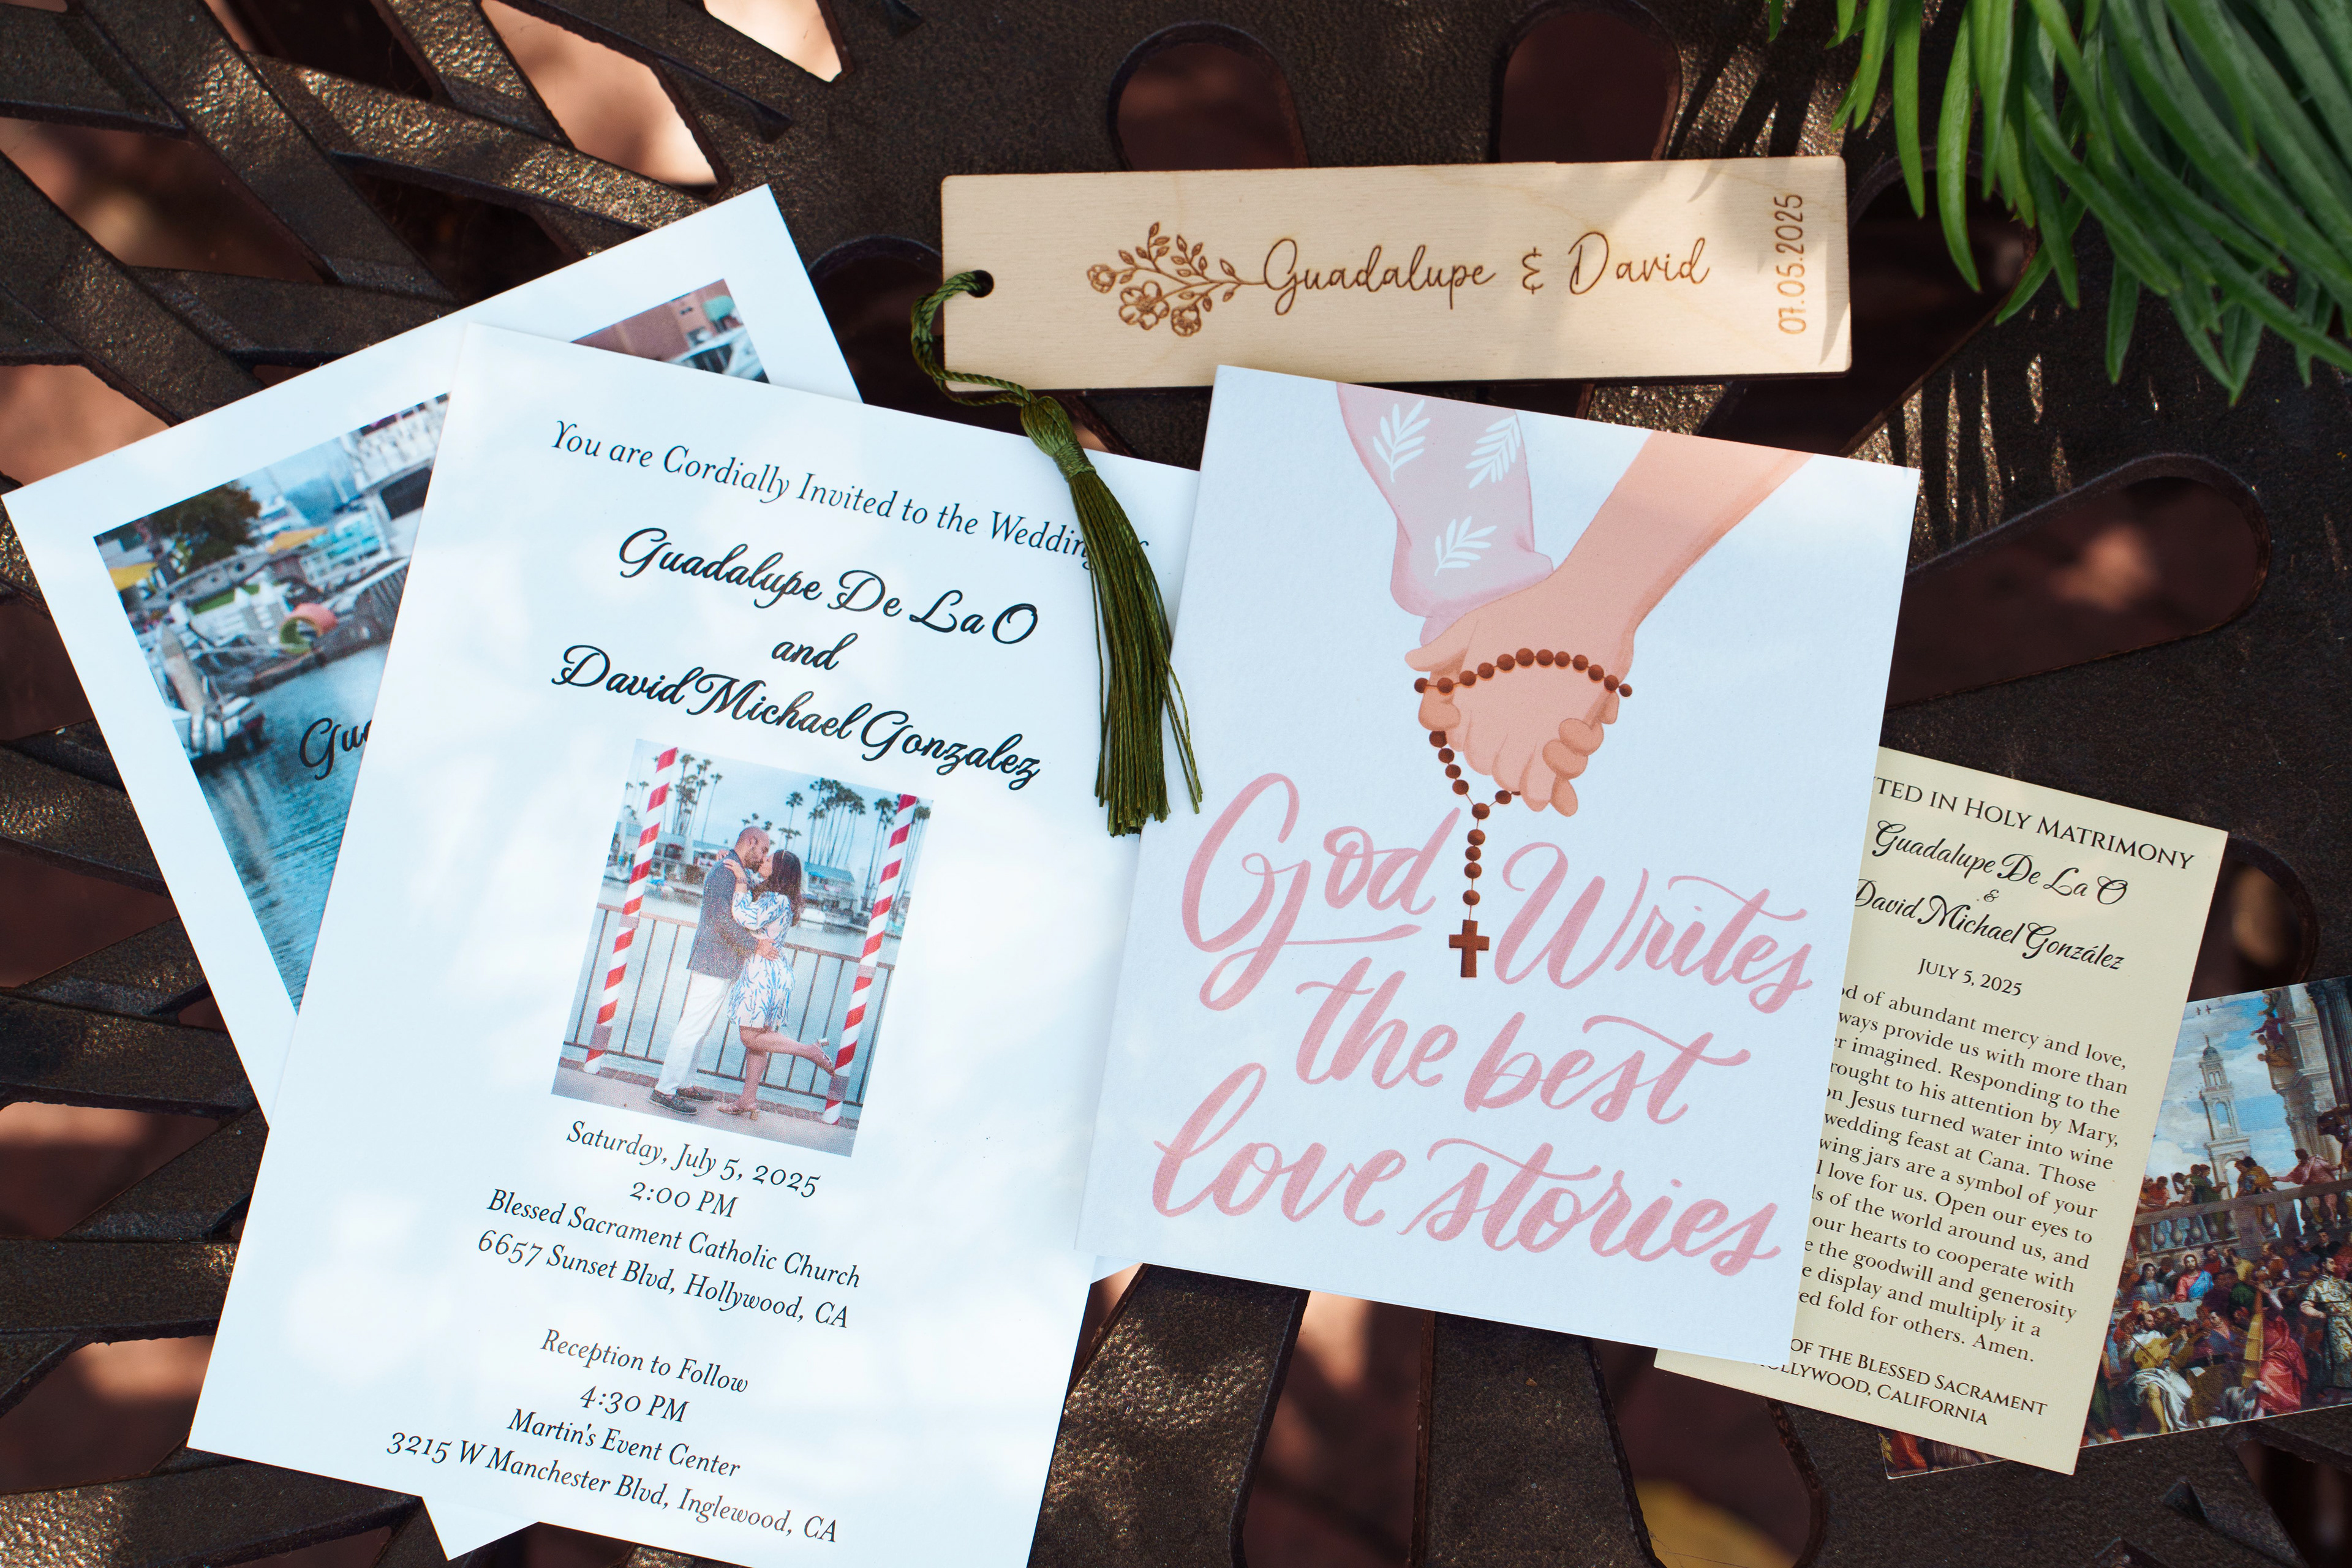 Guadalupe & David
07.05.2025
You are Cordially Invited to the Wedding
Guadalupe De La O
and
David Michael Gonzalez
Saturday, July 5, 2025
2:00 PM
Blessed Sacrament Catholic Church
6657 Sunset Blvd, Hollywood, CA
Reception to Follow
4:30 PM
Martin's Event Center
3215 W Manchester Blvd, Inglewood, CA
God Writes
the best
love stories
IN HOLY MATRIMONY
Guadalupe De La O
&
David Michael González
JULY 5, 2025
of abundant mercy and love,
provide us with more than
imagined. Responding to the
to his attention by Mary,
Jesus turned water into wine
wedding feast at Cana. Those
jars are a symbol of your
love for us. Open our eyes to
of the world around us, and
our hearts to cooperate with
the goodwill and generosity
display and multiply it a
fold for others. Amen.
OF THE BLESSED SACRAMENT
HOLLYWOOD, CALIFORNIA